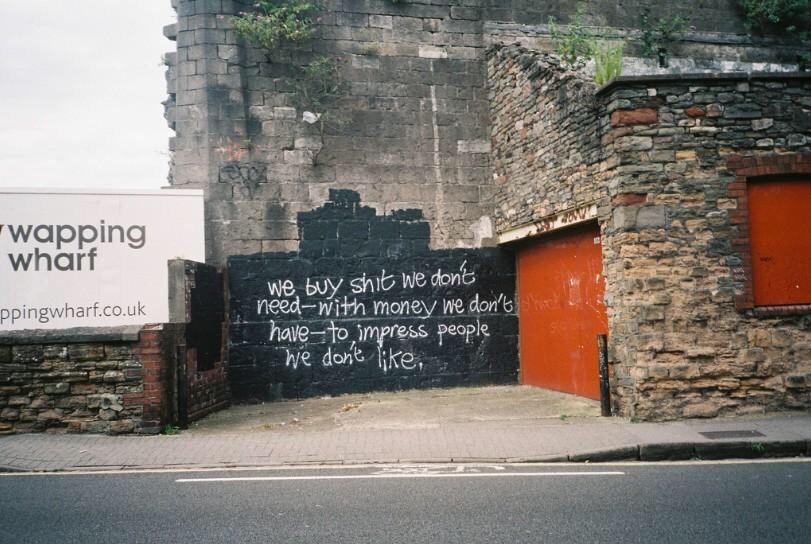 wapping
wharf
ppingwharf.co.uk
we buy shit we don't
need—with money we don't
have—to impress people
we don't like.